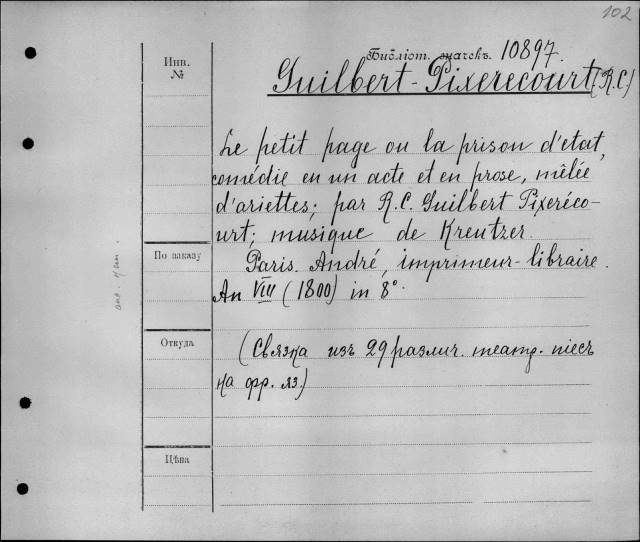 102
Инв.
№
Библіот. значекъ. 10897.
Guilbert-Pixerecourt (R.C)
Le petit page ou la prison d'etat,
comédie en un acte et en prose, mêlée
d'ariettes; par R.C. Guilbert Pixeréco-
urt; musique de Kreutzer.
По заказу
Paris. André, imprimeur-libraire.
An VIII (1800) in 8°.
Откуда
(Связка изъ 29 различ. театр. піесъ
на фр. яз.)
Цѣна